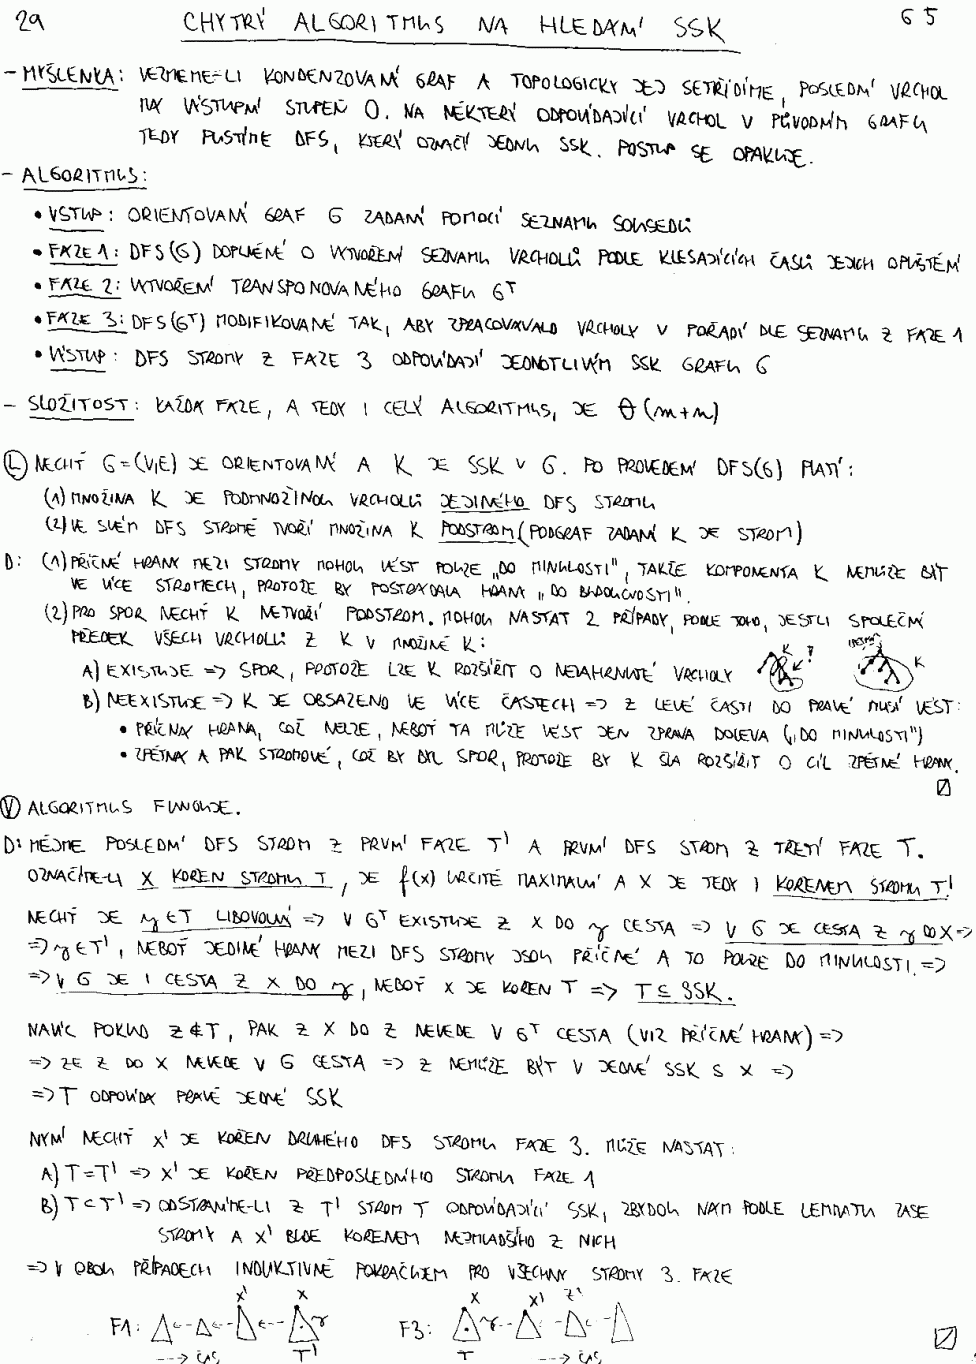 29 CHYTRÝ ALGORITMUS NA HLEDÁNÍ SSK 65
- MYŠLENKA: VEZMEME-LI KONDENZOVANÝ GRAF A TOPOLOGICKY JEJ SETŘÍDÍME, POSLEDNÍ VRCHOL
MÁ VÝSTUPNÍ STUPEŇ 0. NA NĚKTERÝ ODPOVÍDAJÍCÍ VRCHOL V PŮVODNÍM GRAFU
TEDY PUSTÍME DFS, KTERÝ OZNAČÍ JEDNU SSK. POSTUP SE OPAKUJE.
- ALGORITMUS:
• VSTUP: ORIENTOVANÝ GRAF G ZADANÝ POMOCÍ SEZNAMU SOUSEDŮ
• FÁZE 1: DFS(G) DOPLNĚNÉ O VYTVOŘENÍ SEZNAMU VRCHOLŮ PODLE KLESAJÍCÍCH ČASŮ JEJICH OPUŠTĚNÍ
• FÁZE 2: VYTVOŘENÍ TRANSPONOVANÉHO GRAFU G^T
• FÁZE 3: DFS(G^T) MODIFIKOVANÉ TAK, ABY ZPRACOVÁVALO VRCHOLY V POŘADÍ DLE SEZNAMU Z FÁZE 1
• VÝSTUP: DFS STROMY Z FÁZE 3 ODPOVÍDAJÍ JEDNOTLIVÝM SSK GRAFU G
- SLOŽITOST: KAŽDÁ FÁZE, A TEDY I CELÝ ALGORITMUS, JE Θ(m+n)
Ⓛ NECHŤ G=(V,E) JE ORIENTOVANÝ A K JE SSK V G. PO PROVEDENÍ DFS(G) PLATÍ:
(1) MNOŽINA K JE PODMNOŽINOU VRCHOLŮ JEDINÉHO DFS STROMU
(2) VE SVÉM DFS STROMĚ TVOŘÍ MNOŽINA K PODSTROM (PODGRAF ZADANÝ K JE STROM)
D: (1) PŘÍČNÉ HRANY MEZI STROMY MOHOU VÉST POUZE „DO MINULOSTI", TAKŽE KOMPONENTA K NEMŮŽE BÝT
VE VÍCE STROMECH, PROTOŽE BY POSTRÁDALA HRANY „DO BUDOUCNOSTI".
(2) PRO SPOR NECHŤ K NETVOŘÍ PODSTROM. MOHOU NASTAT 2 PŘÍPADY, PODLE TOHO, JESTLI SPOLEČNÝ
PŘEDEK VŠECH VRCHOLŮ Z K V MNOŽINĚ K:
A) EXISTUJE => SPOR, PROTOŽE LZE K ROZŠÍŘIT O NEZAHRNUTÉ VRCHOLY K ? K
B) NEEXISTUJE => K JE OBSAŽENO VE VÍCE ČÁSTECH => Z LEVÉ ČÁSTI DO PRAVÉ MUSÍ VÉST:
• PŘÍČNÁ HRANA, COŽ NELZE, NEBOŤ TA MŮŽE VÉST JEN ZPRAVA DOLEVA („DO MINULOSTI")
• ZPĚTNÁ A PAK STROMOVÉ, COŽ BY BYL SPOR, PROTOŽE BY K ŠLA ROZŠÍŘIT O CÍL ZPĚTNÉ HRANY.
Ⓥ ALGORITMUS FUNGUJE.
D: MĚJME POSLEDNÍ DFS STROM Z PRVNÍ FÁZE T' A PRVNÍ DFS STROM Z TŘETÍ FÁZE T.
OZNAČÍME-LI X KOŘEN STROMU T, JE f(x) URČITĚ MAXIMÁLNÍ A X JE TEDY I KOŘENEM STROMU T'.
NECHŤ JE y∈T LIBOVOLNÝ => V G^T EXISTUJE Z X DO y CESTA => V G JE CESTA Z y DO X =>
=> y∈T', NEBOŤ JEDINÉ HRANY MEZI DFS STROMY JSOU PŘÍČNÉ A TO POUZE DO MINULOSTI. =>
=> V G JE I CESTA Z X DO y, NEBOŤ X JE KOŘEN T => T ⊆ SSK.
NAVÍC POKUD Z∉T, PAK Z X DO Z NEVEDE V G^T CESTA (VIZ PŘÍČNÉ HRANY) =>
=> ZE Z DO X NEVEDE V G CESTA => Z NEMŮŽE BÝT V JEDNÉ SSK S X =>
=> T ODPOVÍDÁ PRÁVĚ JEDNÉ SSK
NYNÍ NECHŤ X' JE KOŘEN DRUHÉHO DFS STROMU FÁZE 3. MŮŽE NASTAT:
A) T=T' => X' JE KOŘEN PŘEDPOSLEDNÍHO STROMU FÁZE 1
B) T⊂T' => ODSTRANÍME-LI Z T' STROM T ODPOVÍDAJÍCÍ SSK, ZBYDOU NÁM PODLE LEMMATU ZASE
STROMY A X' BUDE KOŘENEM NEJMLADŠÍHO Z NICH
=> V OBOU PŘÍPADECH INDUKTIVNĚ POKRAČUJEM PRO VŠECHNY STROMY 3. FÁZE
X' X X X' Z'
F1: y F3: y
---> ČAS T' T ---> ČAS